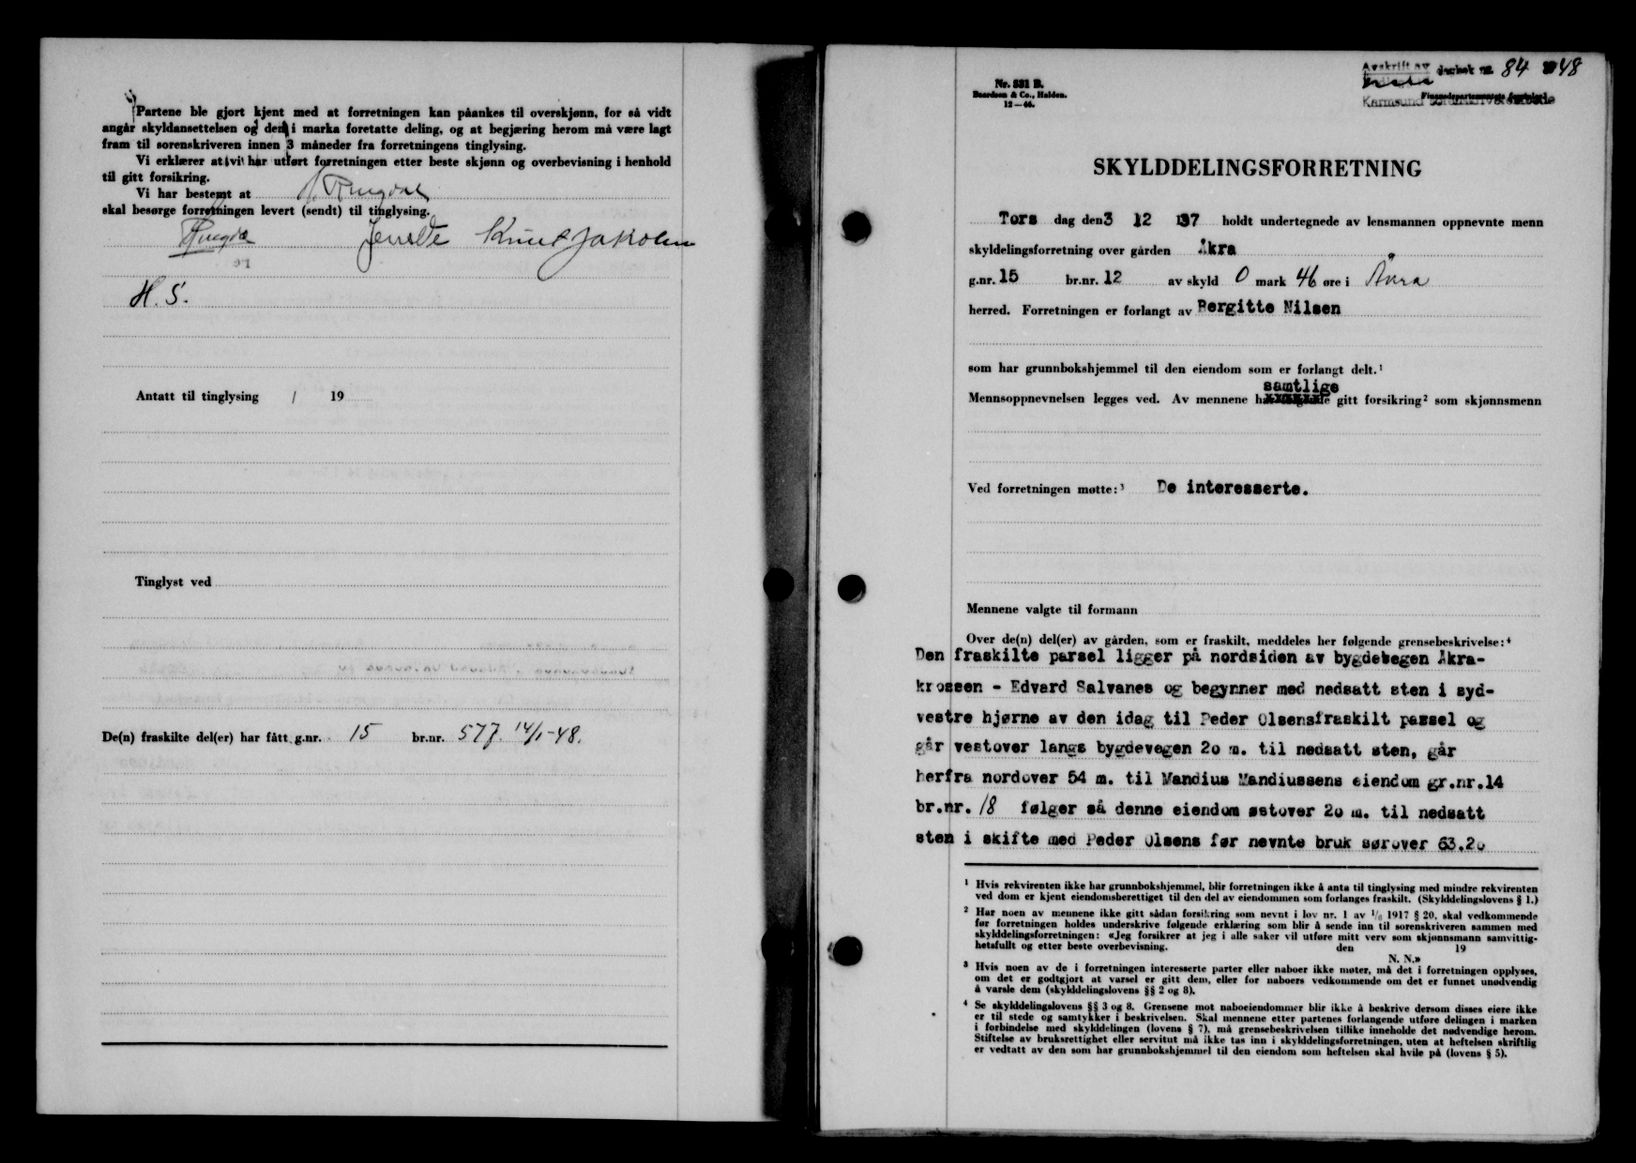 Partene ble gjort kjent med at forretningen kan påankes til overskjønn, for så vidt
angår skyldansettelsen og den i marka foretatte deling, og at begjæring herom må være lagt
fram til sorenskriveren innen 3 måneder fra forretningens tinglysing.
Vi erklærer at vi har utført forretningen etter beste skjønn og overbevisning i henhold
til gitt forsikring.
Vi har bestemt at Ringdal
skal besørge forretningen levert (sendt) til tinglysing.
Knut Jakobsen
H. S.
Antatt til tinglysing / 19
Tinglyst ved
De(n) fraskilte del(er) har fått g.nr. 15 br.nr. 577. 14/1-48.
Nr. 531 B.
Baardsen & Co., Halden.
12—46.
Avskrift av dagbok nr. 84 1948
SKYLDDELINGSFORRETNING
Tors dag den 3 12 1937 holdt undertegnede av lensmannen oppnevnte menn
skyldelingsforretning over gården Åkra
g.nr. 15 br.nr. 12 av skyld 0 mark 46 øre i Åkra
herred. Forretningen er forlangt av Bergitte Nilsen
som har grunnbokshjemmel til den eiendom som er forlangt delt.¹
samtlige
Mennsoppnevnelsen legges ved. Av mennene har følgende gitt forsikring² som skjønnsmenn
Ved forretningen møtte:³ De interesserte.
Mennene valgte til formann
Over de(n) del(er) av gården, som er fraskilt, meddeles her følgende grensebeskrivelse:⁴
Den fraskilte parsel ligger på nordsiden av bygdevegen Åkra-
krossen - Edvard Salvanes og begynner med nedsatt sten i syd-
vestre hjørne av den idag til Peder Olsensfraskilt parsel og
går vestover langs bygdevegen 2o m. til nedsatt sten, går
herfra nordover 54 m. til Mandius Mandiussens eiendom gr.nr.14
br.nr. 18 følger så denne eiendom østover 2o m. til nedsatt
sten i skifte med Peder Olsens før nevnte bruk sørover 63.2o
¹ Hvis rekvirenten ikke har grunnbokshjemmel, blir forretningen ikke å anta til tinglysing med mindre rekvirenten
ved dom er kjent eiendomsberettiget til den del av eiendommen som forlanges fraskilt. (Skylddelingslovens § 1.)
² Har noen av mennene ikke gitt sådan forsikring som nevnt i lov nr. 1 av 1/6 1917 § 20, skal vedkommende
før forretningen holdes underskrive følgende erklæring som blir å sende inn til sorenskriveren sammen med
skylddelingsforretningen: «Jeg forsikrer at jeg i alle saker vil utføre mitt verv som skjønnsmann samvittig-
hetsfullt og etter beste overbevisning. den 19
N. N.»
³ Hvis noen av de i forretningen interesserte parter eller naboer ikke møter, må det i forretningen opplyses,
om det er godtgjort at varsel er gitt dem, eller for naboers vedkommende om det er funnet unødvendig
å varsle dem (skylddelingslovens §§ 2 og 8).
⁴ Se skylddelingslovens §§ 3 og 8. Grensene mot naboeiendommer blir ikke å beskrive dersom disses eiere ikke
er til stede og samtykker i beskrivelsen. Skal mennene etter partenes forlangende utføre delingen i marken
i forbindelse med skylddelingen (lovens § 7), må grensebeskrivelsen tillike inneholde det nødvendige herom.
Stiftelse av bruksrettighet eller servitut må ikke tas inn i skylddelingsforretningen, uten at heftelsen skriftlig
er vedtatt av den som har grunnbokshjemmel til den eiendom som heftelsen skal hvile på (lovens § 5).